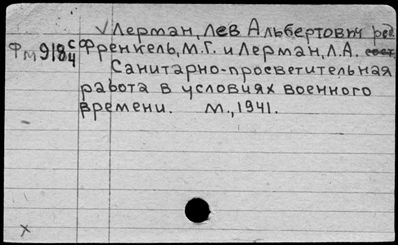 Лерман, Лев Альбертович ред.
Фм 918с/4 Френкель, М.Г. и Лерман, Л.А. сост.
Санитарно-просветительная
работа в условиях военного
времени. М., 1941.
х